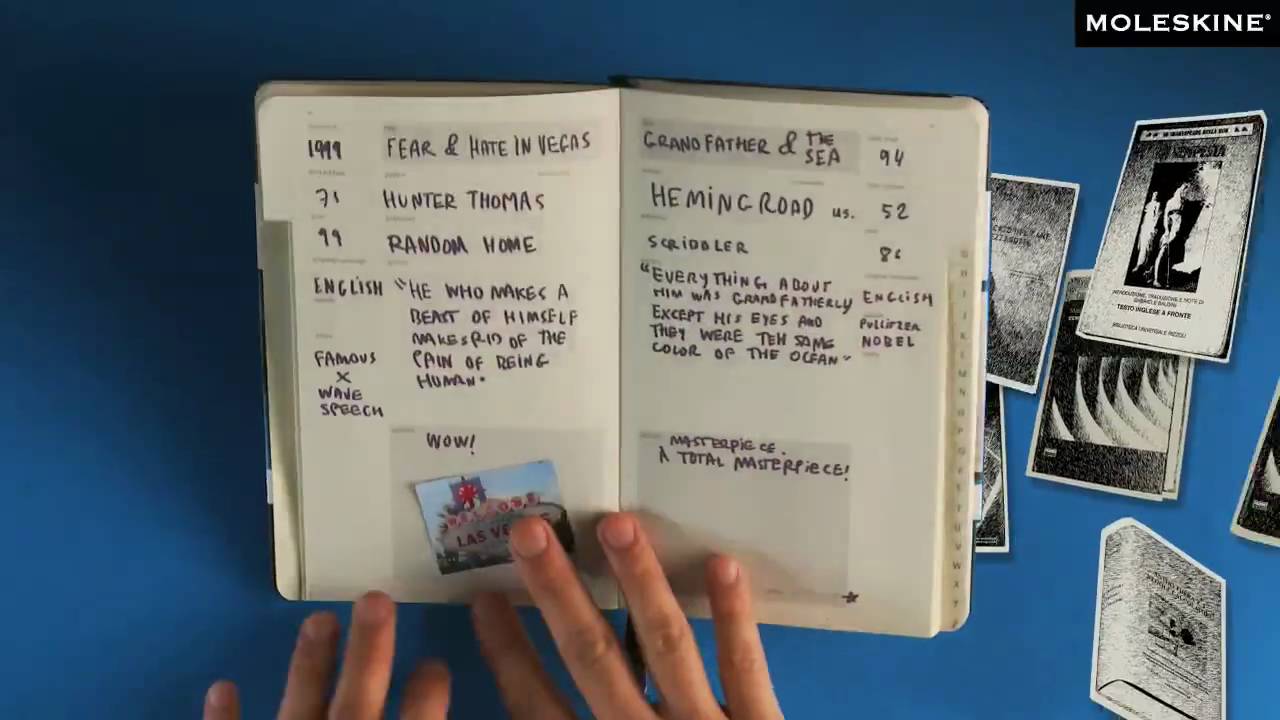 MOLESKINE®
1999
FEAR & HATE IN VEGAS
71
HUNTER THOMAS
99
RANDOM HOME
ENGLISH
"HE WHO MAKES A
BEAST OF HIMSELF
MAKES RID OF THE
PAIN OF BEING
HUMAN"
FAMOUS
X
WAVE
SPEECH
WOW!
LAS
GRANDFATHER & THE
SEA
94
HEMINGROAD us.
52
SCRIBBLER
86
"EVERYTHING ABOUT
HIM WAS GRANDFATHERLY
EXCEPT HIS EYES AND
THEY WERE TEH SAME
COLOR OF THE OCEAN"
ENGLISH
PULLITZER
NOBEL
MASTERPIECE.
A TOTAL MASTERPIECE!
K
L
M
N
O
P
T
U
V
W
X
Y
INTRODUZIONE, TRADUZIONE E NOTE DI
GABRIELE BALDINI
TESTO INGLESE A FRONTE
BIBLIOTECA UNIVERSALE RIZZOLI